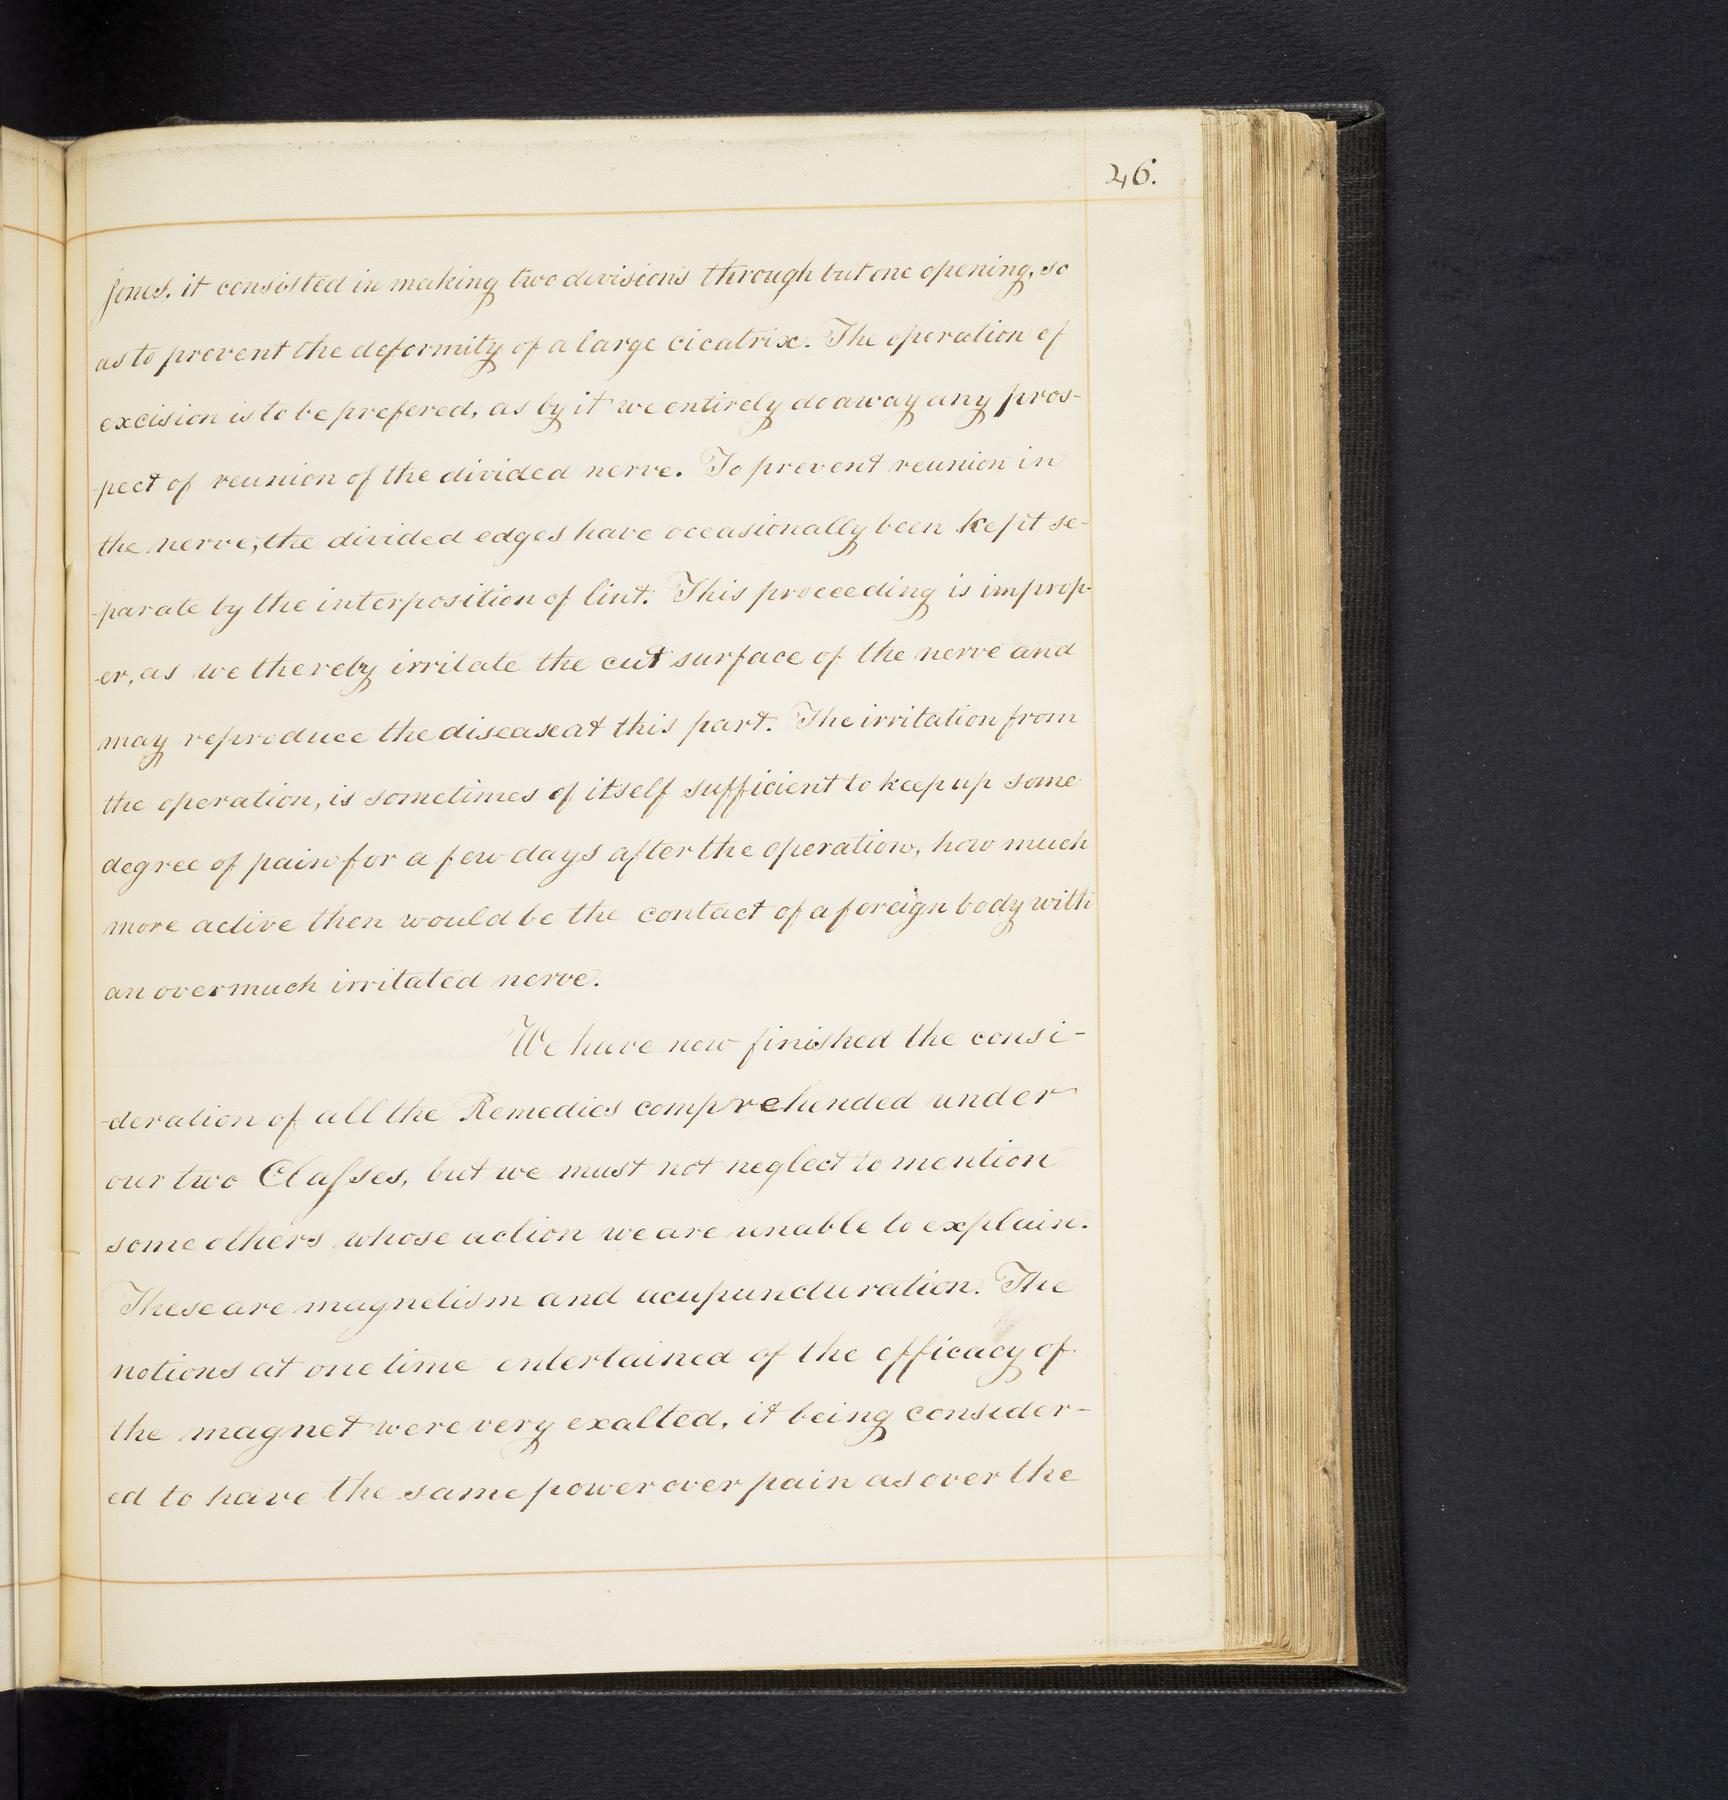 46.
Jones. it consisted in making two divisions through but one opening, so
as to prevent the deformity of a large cicatrix. The operation of
excision is to be prefered, as by it we entirely do away any pros-
-pect of reunion of the divided nerve. To prevent reunion in
the nerve, the divided edges have occasionally been kept se-
-parate by the interposition of lint. This proceeding is improp-
-er, as we thereby irritate the cut surface of the nerve and
may reproduce the disease at this part. The irritation from
the operation, is sometimes of itself sufficient to keep up some
degree of pain for a few days after the operation, how much
more active then would be the contact of a foreign body with
an overmuch irritated nerve.
We have now finished the consi-
-deration of all the Remedies comprehended under
our two Claſses, but we must not neglect to mention
some others whose action we are unable to explain.
These are magnetism and acupuncturation. The
notions at one time entertained of the efficacy of
the magnet were very exalted, it being consider-
ed to have the same power over pain as over the